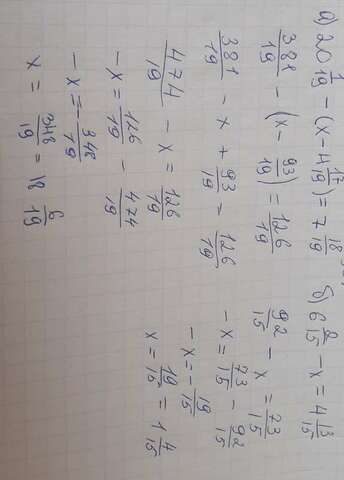 а) 20 1/19 − (x − 4 17/19) = 7 18/19
381/19 − (x − 93/19) = 126/19
381/19 − x + 93/19 = 126/19
474/19 − x = 126/19
−x = 126/19 − 474/19
−x = −348/19
x = 348/19 = 18 6/19
б) 6 2/15 − x = 4 13/15
92/15 − x = 73/15
−x = 73/15 − 92/15
−x = −19/15
x = 19/15 = 1 4/15